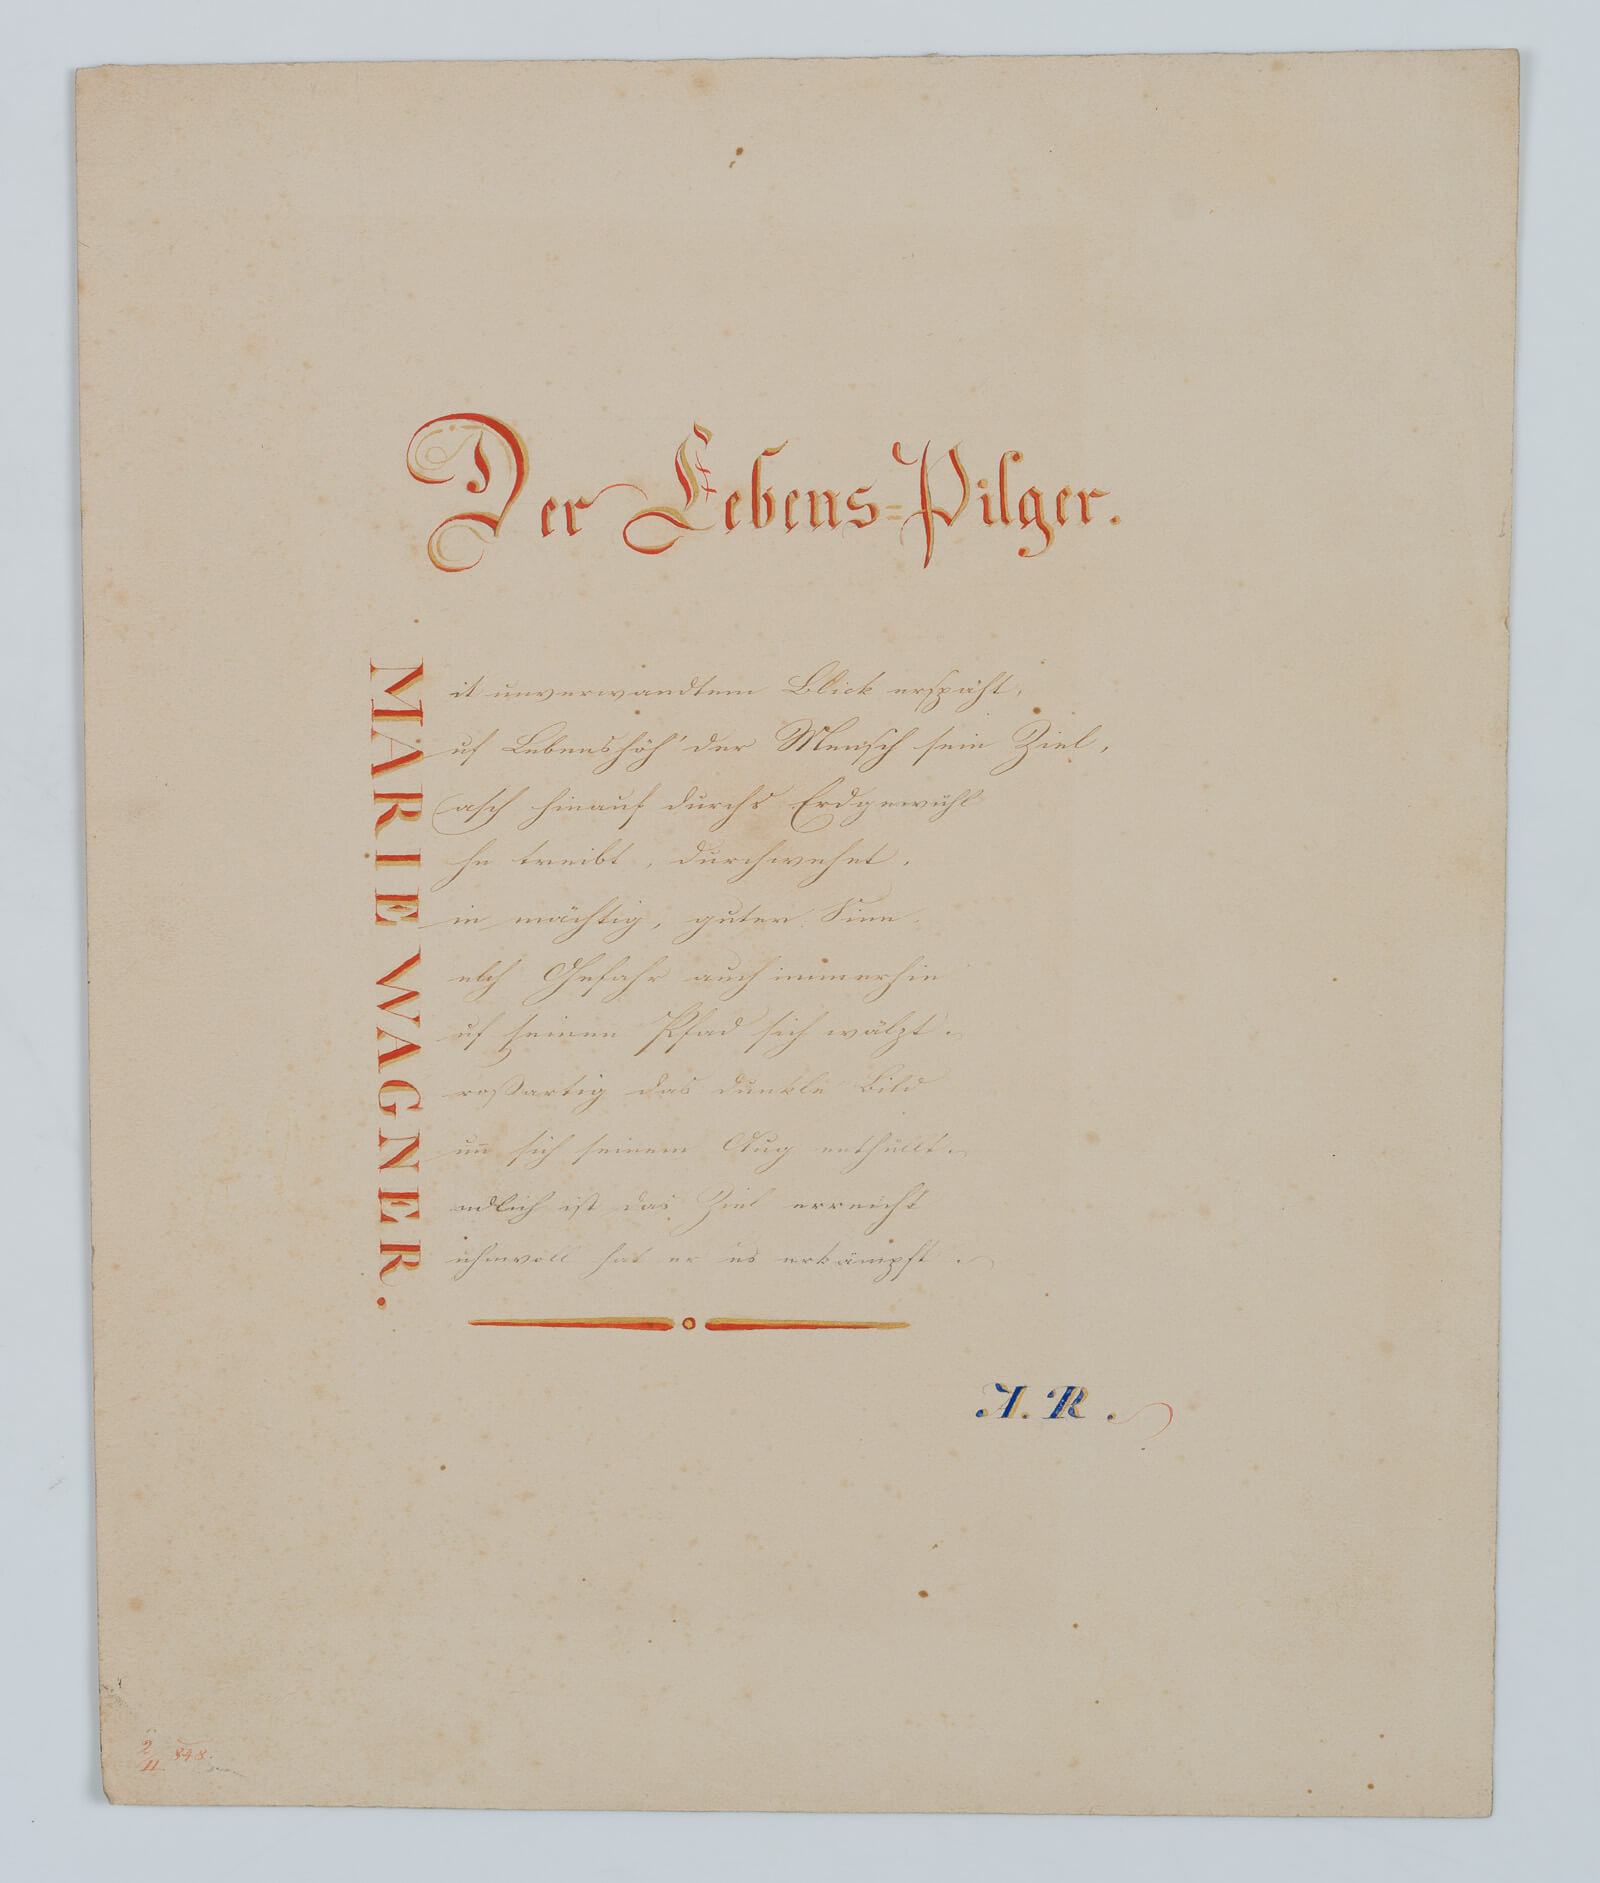 Der Lebens=Pilger.
MARIE WAGNER.
it unverwandtem Blick erspäht,
uf Lebenshöh' der Mensch sein Ziel,
asch hinauf durchs Erdgewühl
hn treibt, durchwehet,
in mächtig, guter Sinn.
elch Gefahr auch immerhin
uf seinen Pfad sich wälzt.
roßartig das dunkle Bild
un̄ sich seinem Aug enthüllt.
ndlich ist das Ziel erreicht
uhmvoll hat er es erkämpft.
A. R.
2/11 848.